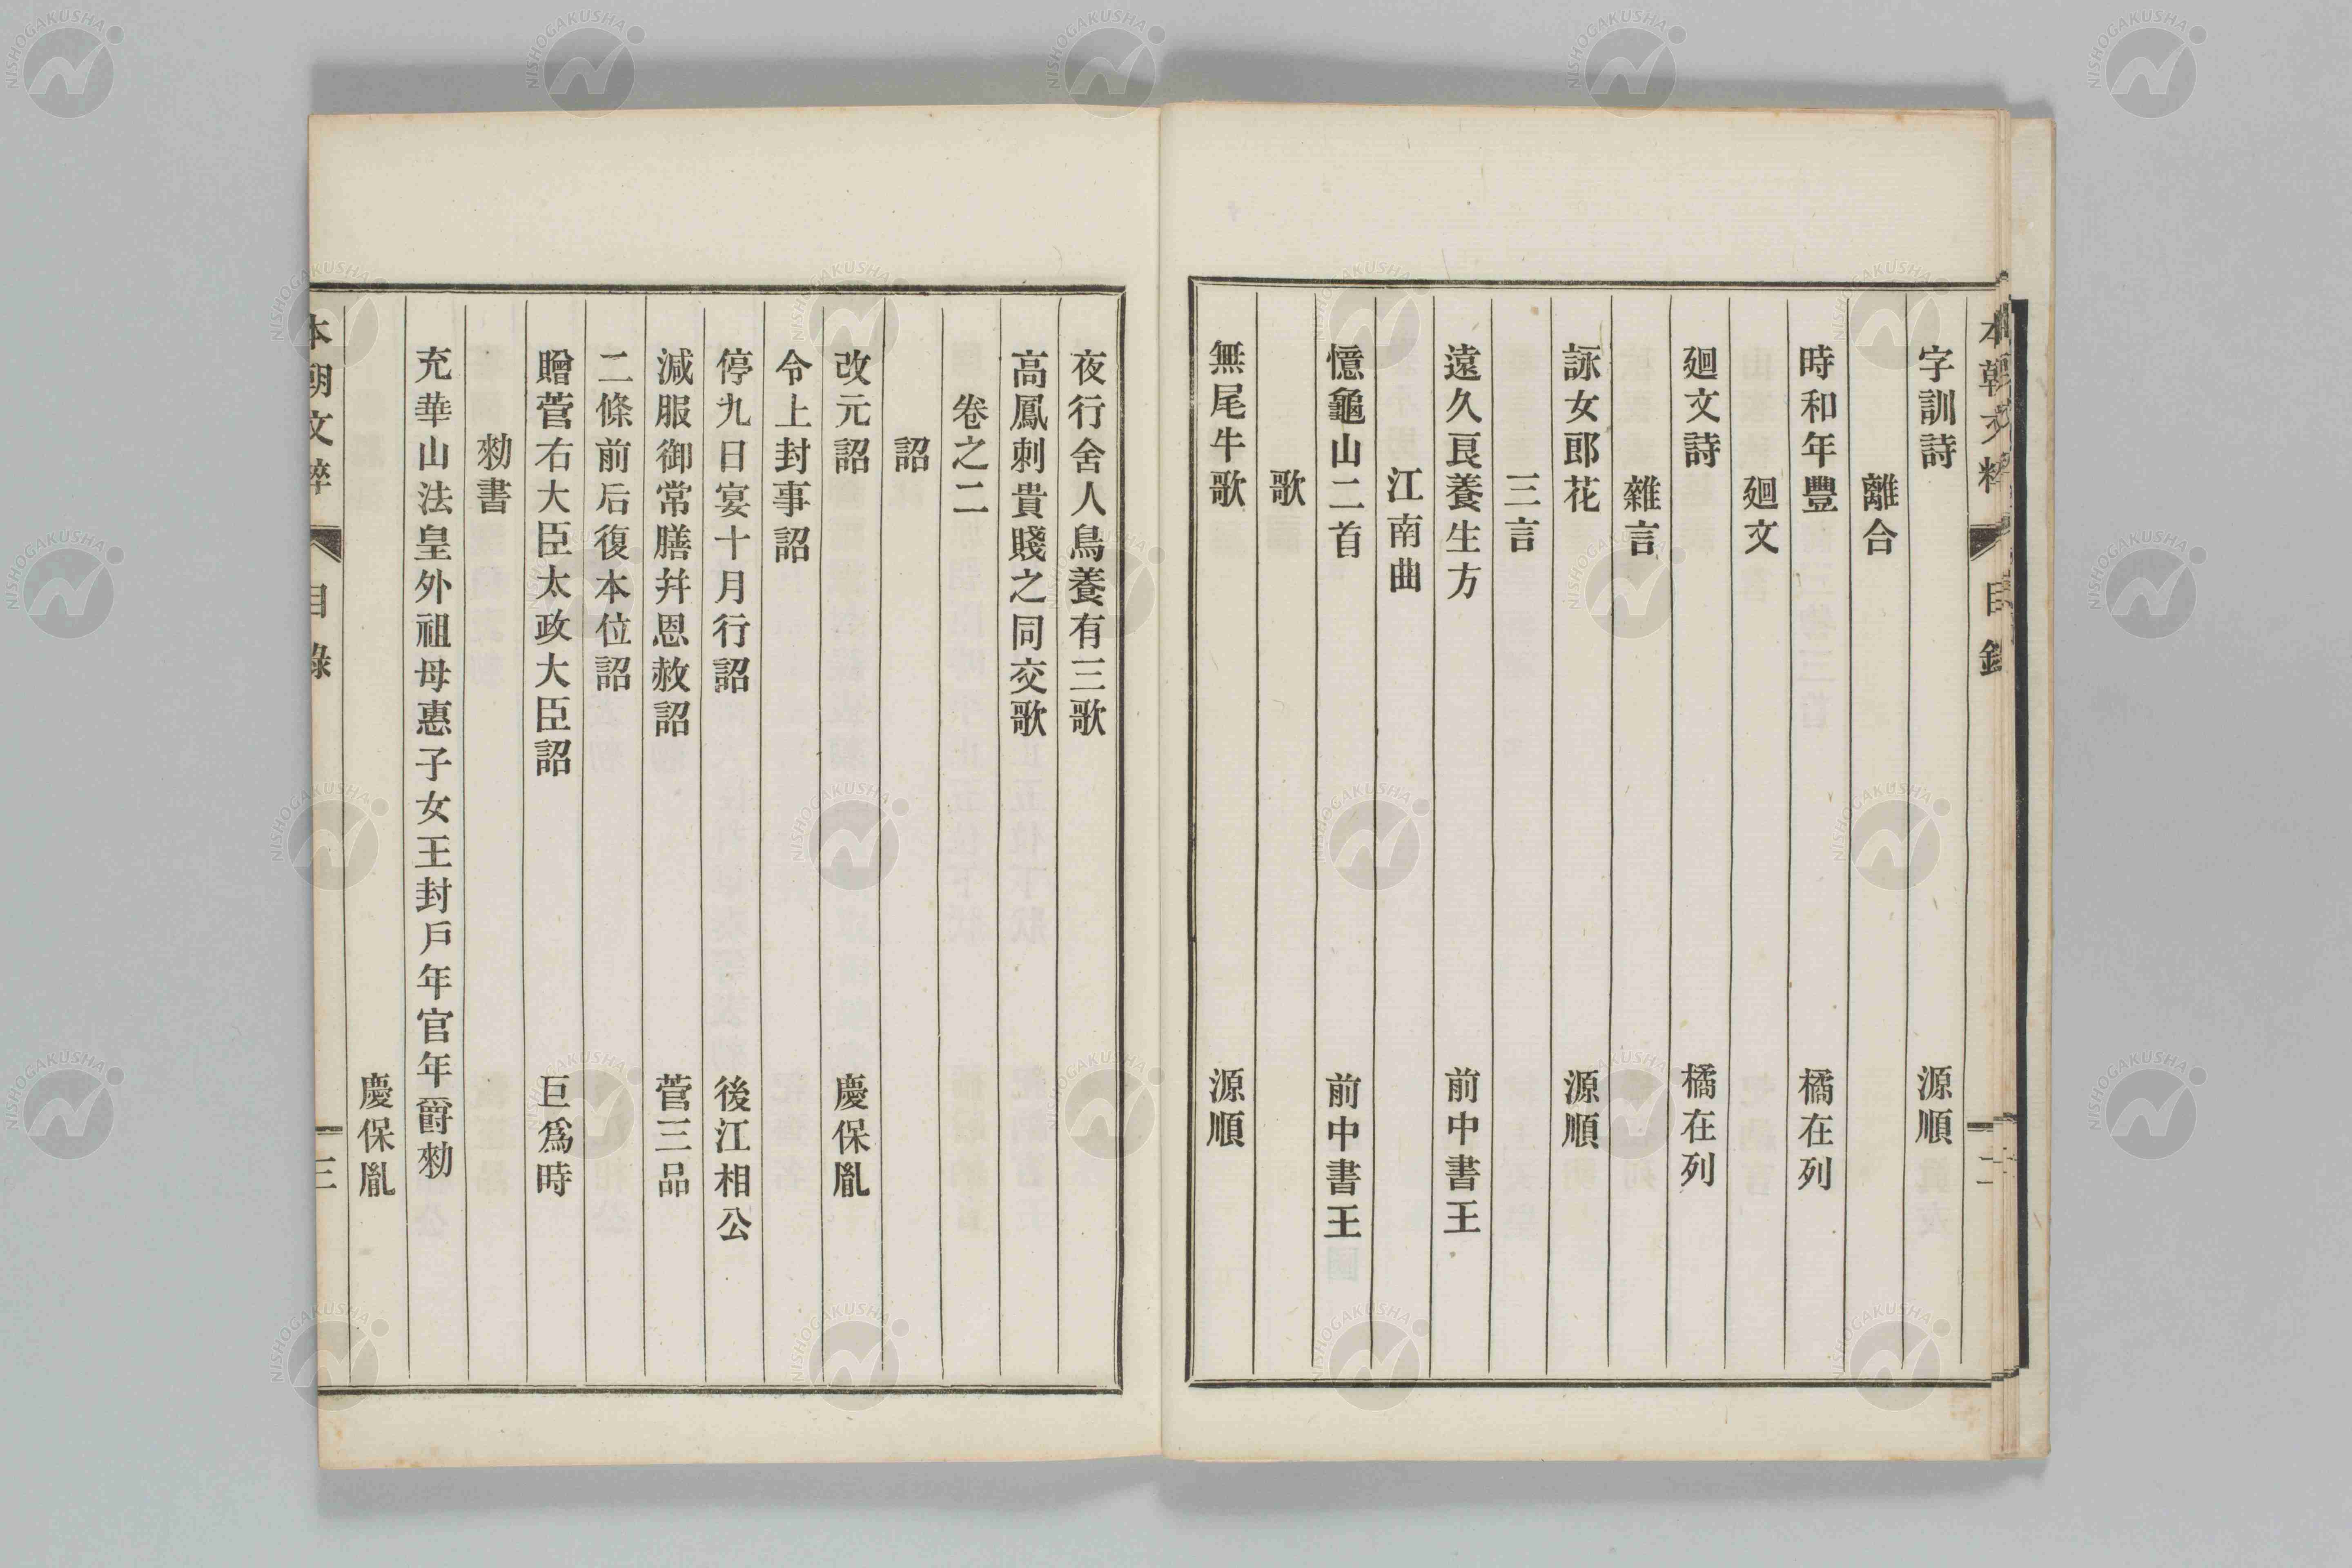 本朝文粹 目錄 二
字訓詩 源順
離合
時和年豐 橘在列
廻文
廻文詩 橘在列
雜言
詠女郎花 源順
三言
遠久良養生方 前中書王
江南曲
憶龜山二首 前中書王
歌
無尾牛歌 源順
夜行舍人鳥養有三歌
高鳳刺貴賤之同交歌
卷之二
詔
改元詔 慶保胤
令上封事詔
停九日宴十月行詔 後江相公
減服御常膳幷恩赦詔 菅三品
二條前后復本位詔
贈菅右大臣太政大臣詔 巨爲時
勑書
充華山法皇外祖母惠子女王封戶年官年爵勑
慶保胤
本朝文粹 目錄 三
NISHOGAKUSHA